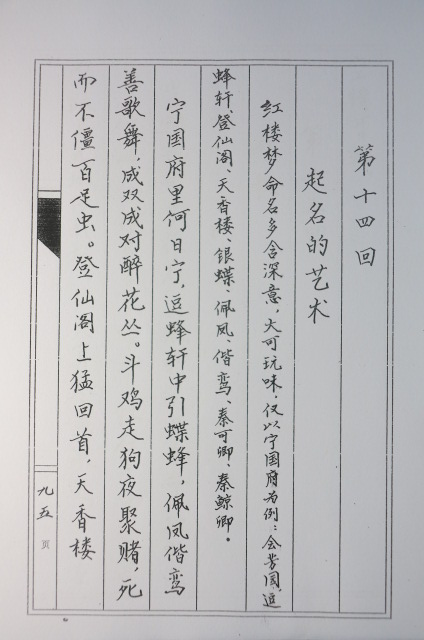 第十四回
起名的艺术
红楼梦命名多含深意，大可玩味，仅以宁国府为例：会芳园、逗
蜂轩、登仙阁、天香楼、银蝶、佩凤、偕鸾、秦可卿、秦鲸卿。
宁国府里何日宁，逗蜂轩中引蝶蜂，佩凤偕鸾
善歌舞，成双成对醉花丛。斗鸡走狗夜聚赌，死
而不僵百足虫。登仙阁上猛回首，天香楼
九五页